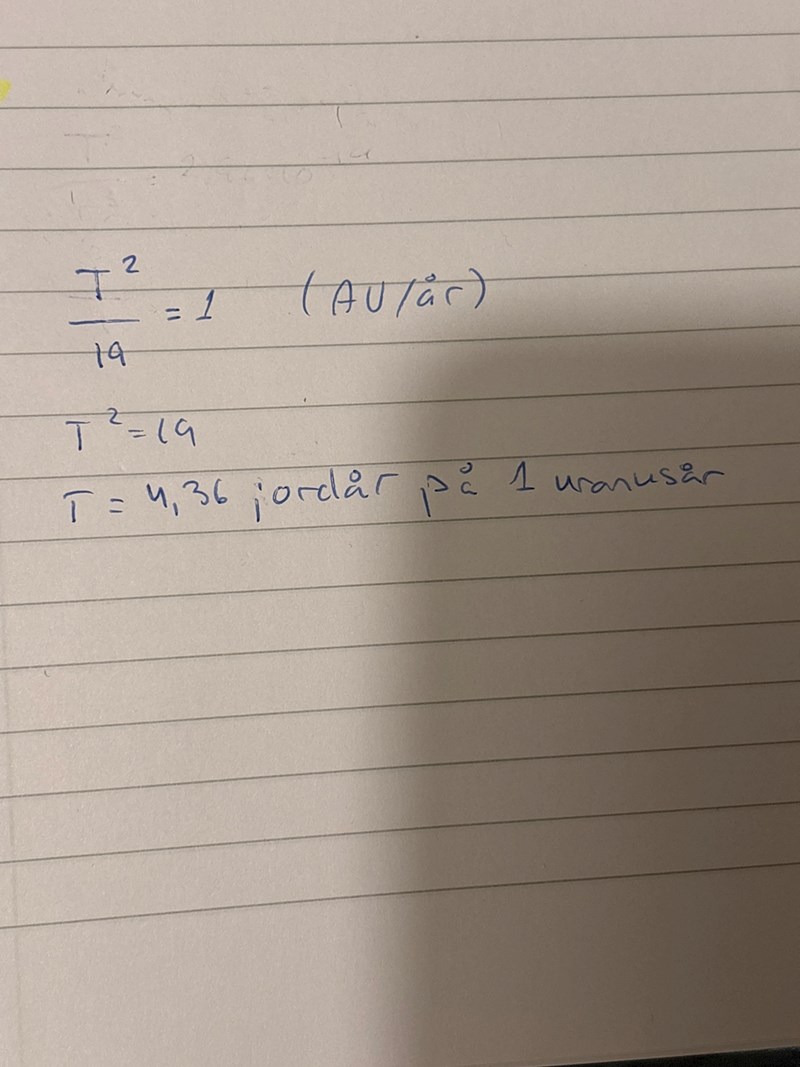 T² / 19 = 1 (AU/år)
T² = 19
T = 4,36 jordår på 1 uranusår